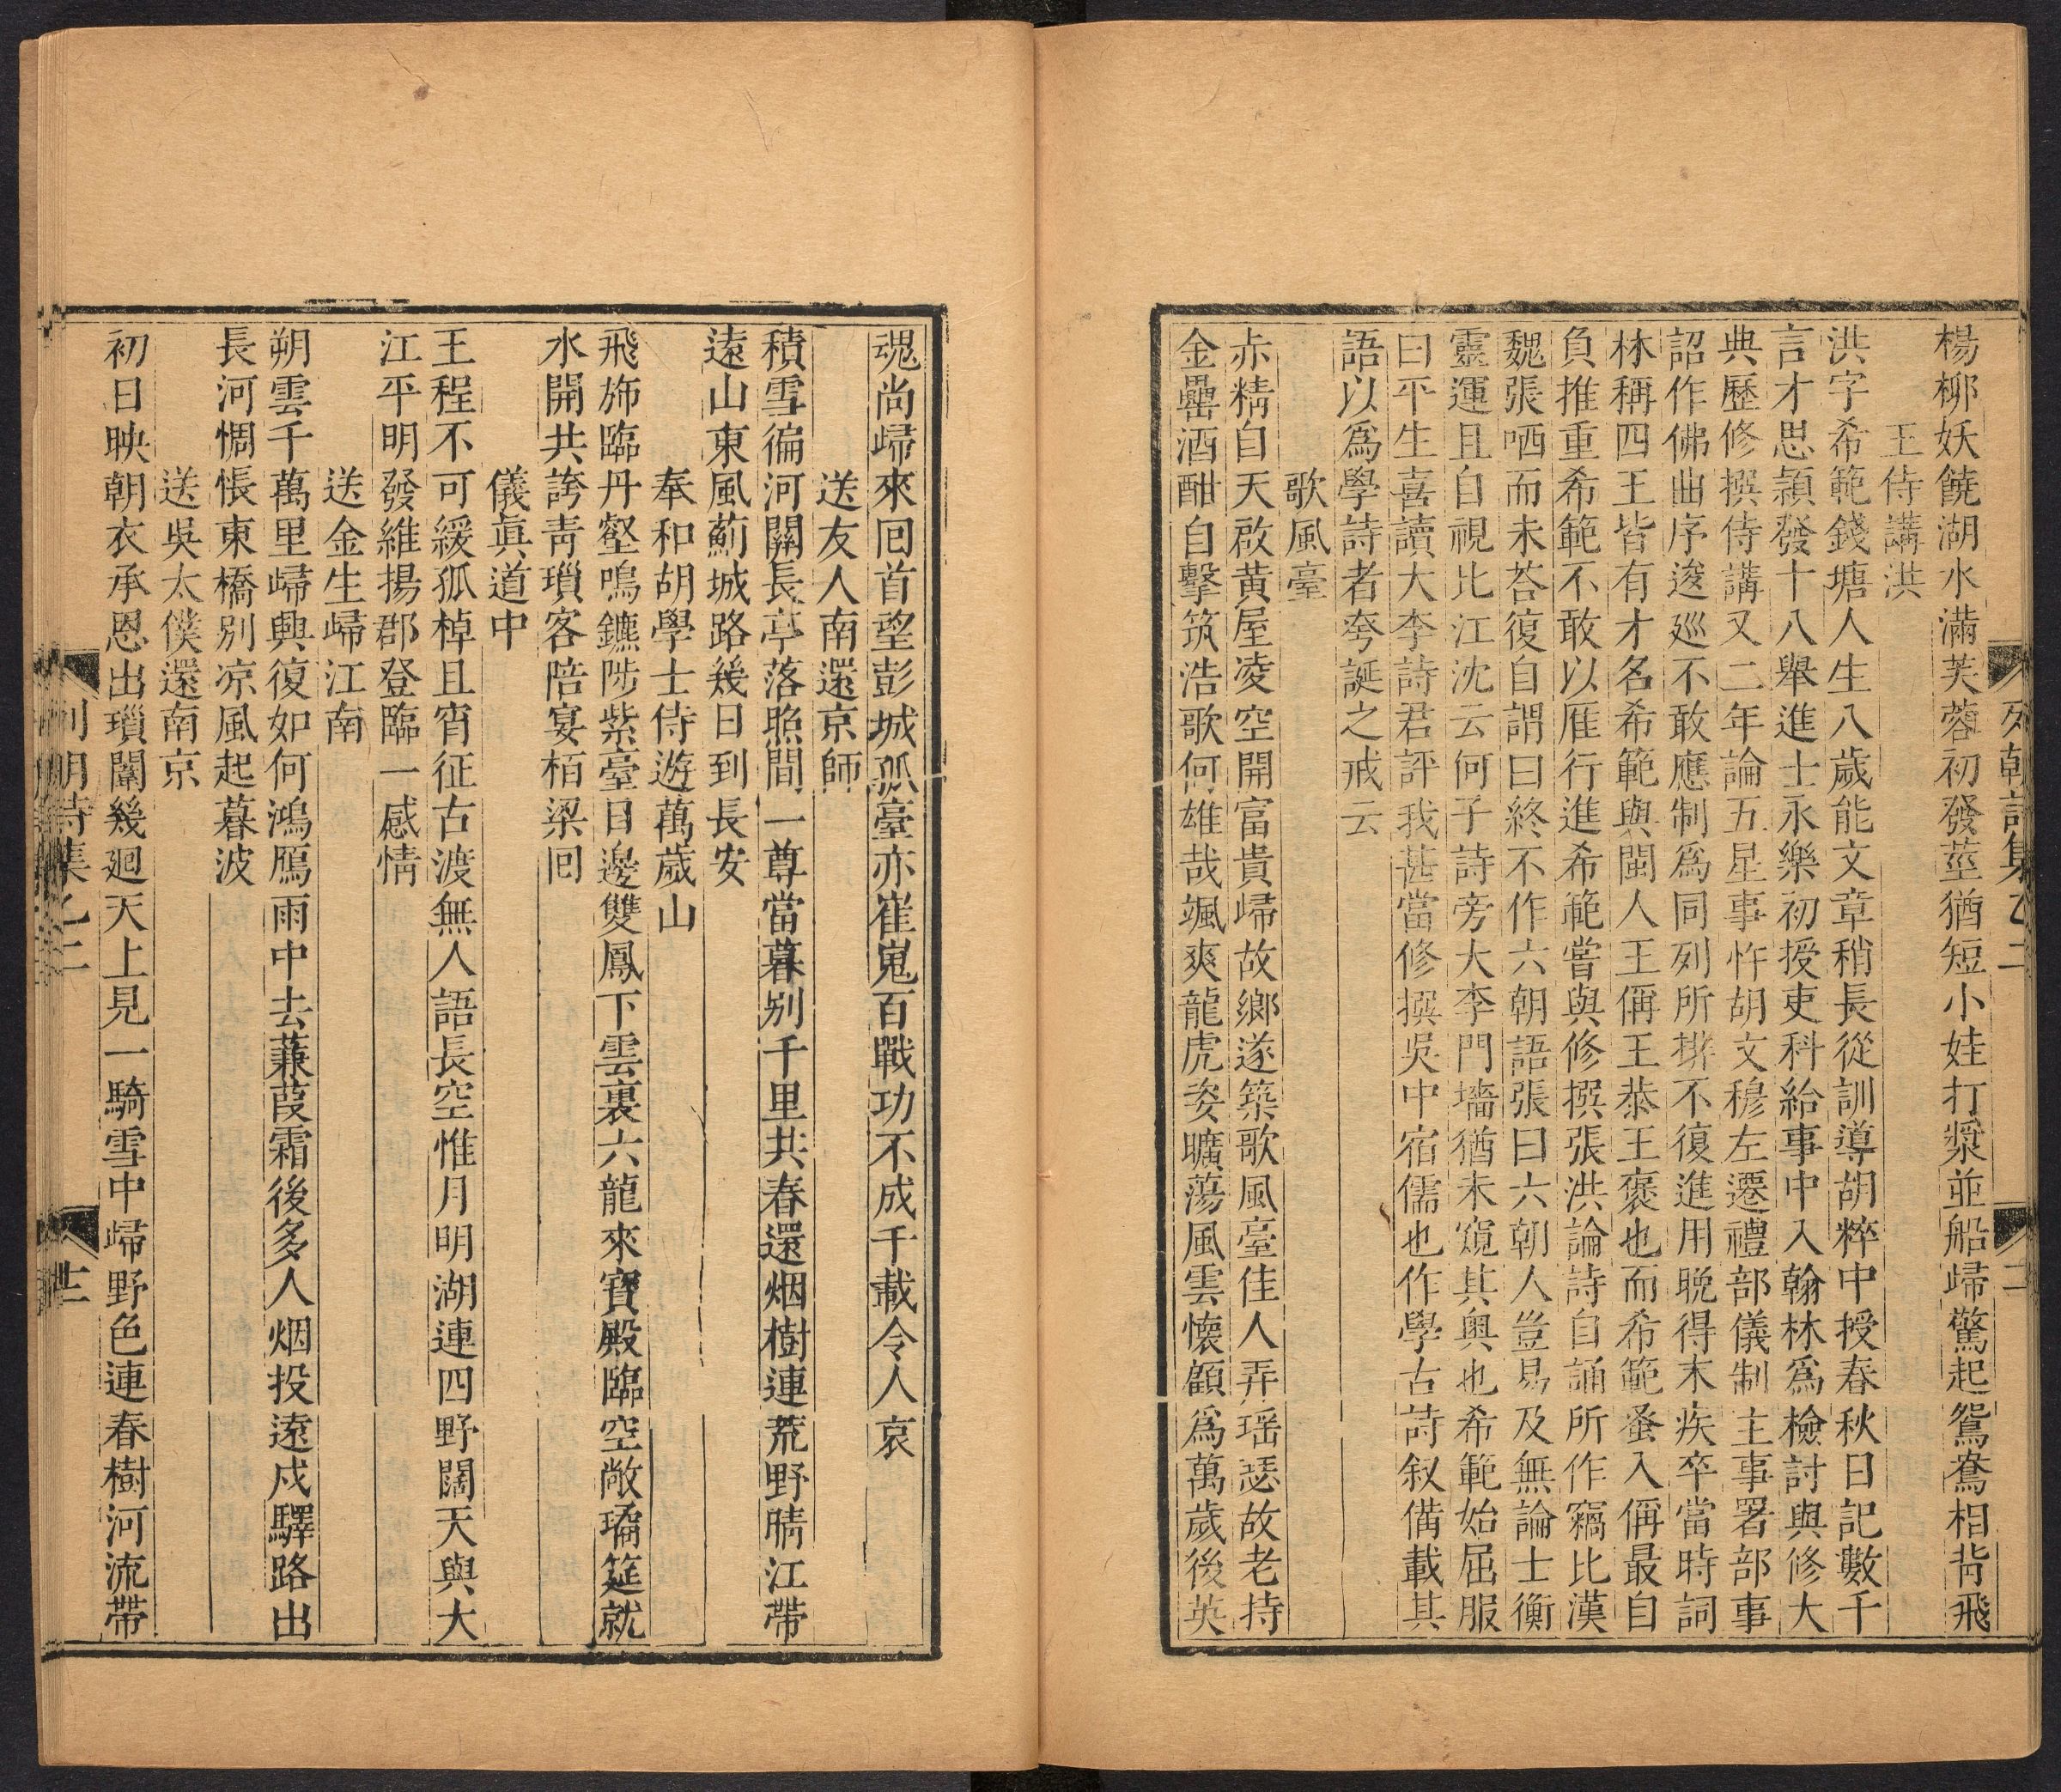 楊柳妖饒湖水滿芙蓉初發莖猶短小娃打槳並船歸驚起鴛鴦相背飛
王侍講洪
洪字希範錢塘人生八歲能文章稍長從訓導胡粹中授春秋日記數千
言才思頴發十八舉進士永樂初授吏科給事中入翰林爲檢討與修大
典歷修撰侍講又二年論五星事忤胡文穆左遷禮部儀制主事署部事
詔作佛曲序逡廵不敢應制爲同列所排不復進用晩得末疾卒當時詞
林稱四王皆有才名希範與閩人王偁王恭王褒也而希範蚤入偁最自
負推重希範不敢以雁行進希範嘗與修撰張洪論詩自誦所作竊比漢
魏張哂而未荅復自謂曰終不作六朝語張曰六朝人豈易及無論士衡
靈運且自視比江沈云何子詩旁大李門墻猶未窺其奧也希範始屈服
曰平生喜讀大李詩君評我甚當修撰吳中宿儒也作學古詩叙備載其
語以爲學詩者夸誕之戒云
歌風臺
赤精自天啟黃屋凌空開富貴歸故鄉遂築歌風臺佳人弄瑶瑟故老持
金罍酒酣自擊筑浩歌何雄哉颯爽龍虎姿曠蕩風雲懷顧爲萬歲後英
列朝詩集乙二
二
魂尚歸來囘首望彭城孤臺亦崔嵬百戰功不成千載令人哀
送友人南還京師
積雪徧河關長亭落照間一尊當暮别千里共春還烟樹連荒野晴江帶
遠山東風薊城路幾日到長安
奉和胡學士侍遊萬歲山
飛斾臨丹壑鳴鑣陟紫臺日邊雙鳳下雲裏六龍來寳殿臨空敞瑤筵就
水開共誇靑瑣客陪宴栢梁囘
儀眞道中
王程不可緩孤棹且宵征古渡無人語長空惟月明湖連四野闊天與大
江平明發維揚郡登臨一感情
送金生歸江南
朔雲千萬里歸興復如何鴻鴈雨中去蒹葭霜後多人烟投遠戍驛路出
長河惆悵東橋别凉風起暮波
送吳太僕還南京
初日映朝衣承恩出瑣闈幾廻天上見一騎雪中歸野色連春樹河流帶
列朝詩集乙二